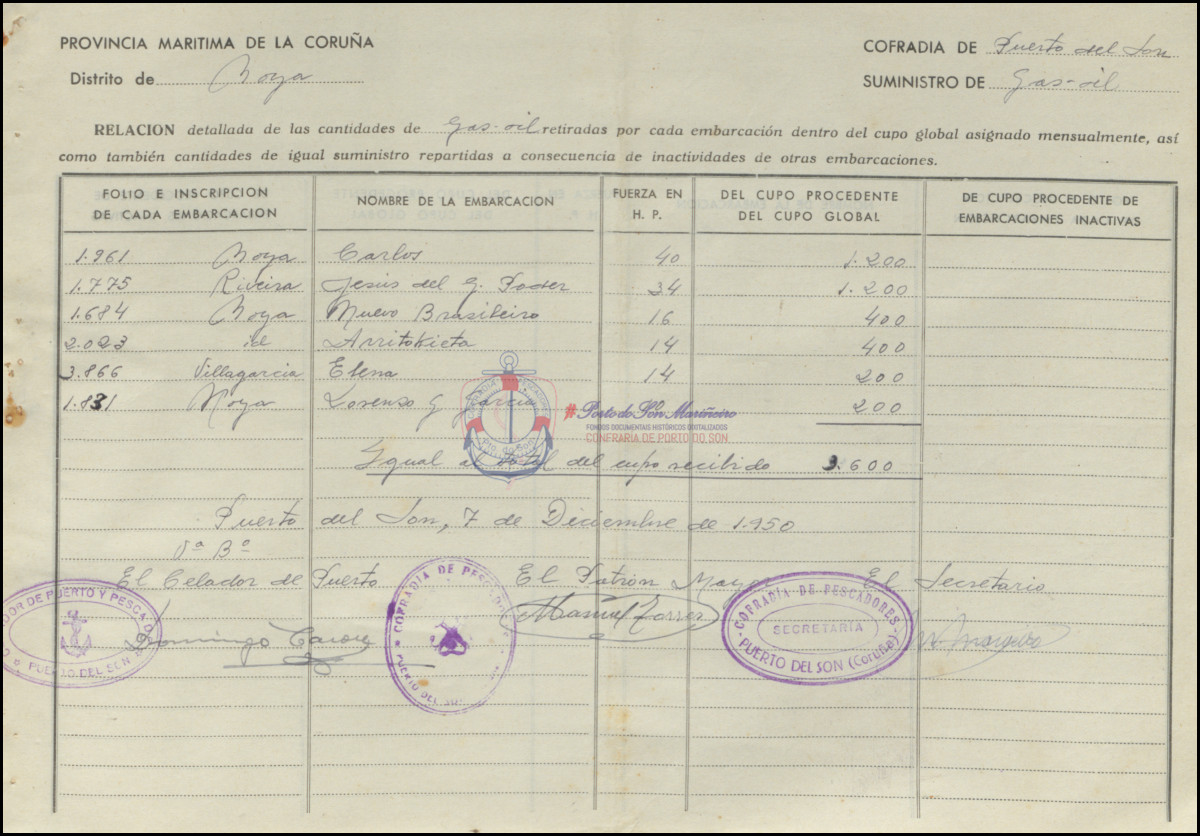 PROVINCIA MARITIMA DE LA CORUÑA
Distrito de Noya
COFRADIA DE Puerto del Son
SUMINISTRO DE Gas-oil
RELACION detallada de las cantidades de Gas-oil retiradas por cada embarcación dentro del cupo global asignado mensualmente, así
como también cantidades de igual suministro repartidas a consecuencia de inactividades de otras embarcaciones.
FOLIO E INSCRIPCION DE CADA EMBARCACION NOMBRE DE LA EMBARCACION FUERZA EN H. P. DEL CUPO PROCEDENTE DEL CUPO GLOBAL DE CUPO PROCEDENTE DE EMBARCACIONES INACTIVAS
1.961 Noya Carlos 40 1.200
1.775 Riveira Jesús del G. Poder 34 1.200
1.684 Noya Nuevo Brasileiro 16 400
2.023 id Arritokieta 14 400
3.866 Villagarcia Elena 14 200
1.831 Noya Lorenzo G García 200
#Porto do Son Mariñeiro
FONDOS DOCUMENTAIS HISTÓRICOS DIXITALIZADOS
CONFRARIA DE PORTO DO SON
Igual al total del cupo recibido 3.600
Puerto del Son, 7 de Diciembre de 1.950
Vº Bº
El Celador de Puerto El Patrón Mayor El Secretario
Domingo
Manuel Torres
PUERTO Y PESCA
PUERTO DEL SON
COFRADIA DE
PUERTO DEL SON
COFRADIA DE PESCADORES
SECRETARIA
PUERTO DEL SON (Coruña)